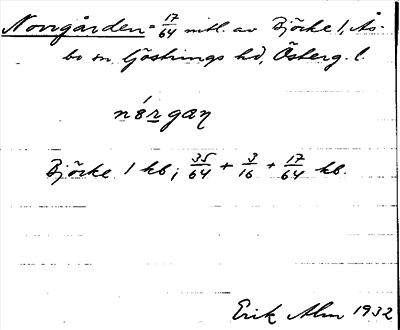 Norrgården = 17/64 mtl. av Björke 1, Ås-
bo sn Göstrings hd, Österg. l.
nǿrgaɳ
Björke 1 hb; 35/64 + 3/16 + 17/64 hb.
Erik Alm 1932